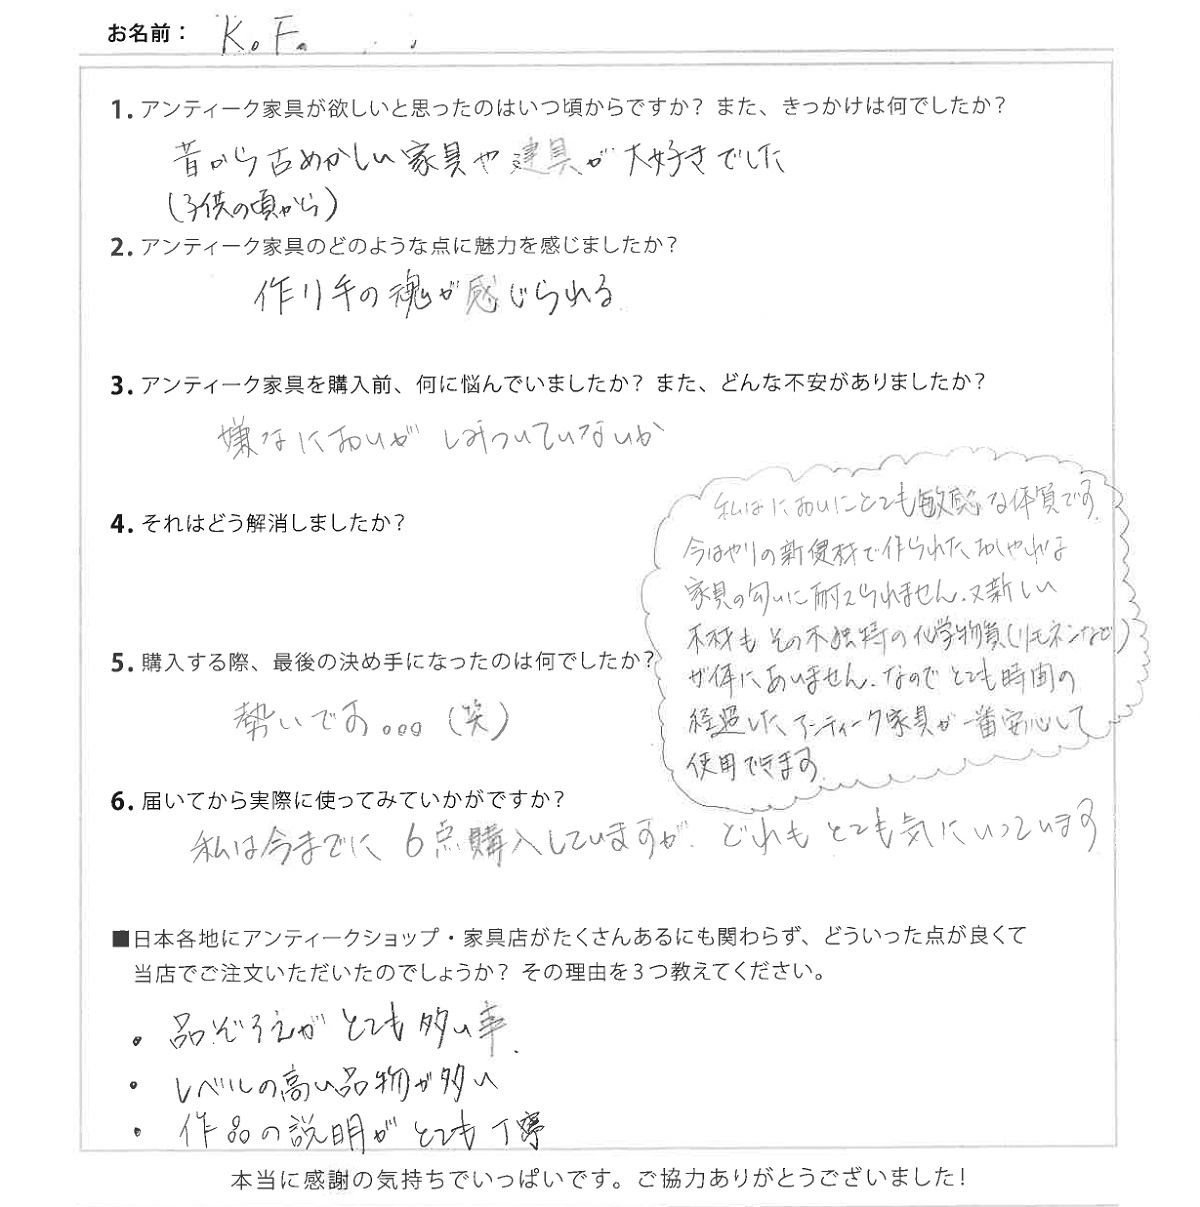 お名前： K. F.
1. アンティーク家具が欲しいと思ったのはいつ頃からですか？ また、きっかけは何でしたか？
昔から古めかしい家具や建具が大好きでした
(子供の頃から)
2. アンティーク家具のどのような点に魅力を感じましたか？
作り手の魂が感じられる
3. アンティーク家具を購入前、何に悩んでいましたか？ また、どんな不安がありましたか？
嫌なにおいがしみついていないか
4. それはどう解消しましたか？
私はにおいにとても敏感な体質です
今はやりの新建材で作られたおしゃれな
家具の匂いに耐えられません。又新しい
木材もその木独特の化学物質(リモネンなど)
が体にあいません。なのでとても時間の
経過したアンティーク家具が一番安心して
使用できます
5. 購入する際、最後の決め手になったのは何でしたか？
勢いです。。。(笑)
6. 届いてから実際に使ってみていかがですか？
私は今までに6点購入していますが、どれもとても気にいっています
■日本各地にアンティークショップ・家具店がたくさんあるにも関わらず、どういった点が良くて
当店でご注文いただいたのでしょうか？ その理由を３つ教えてください。
・ 品ぞろえがとても多い事.
・ レベルの高い品物が多い
・ 作品の説明がとても丁寧
本当に感謝の気持ちでいっぱいです。ご協力ありがとうございました！